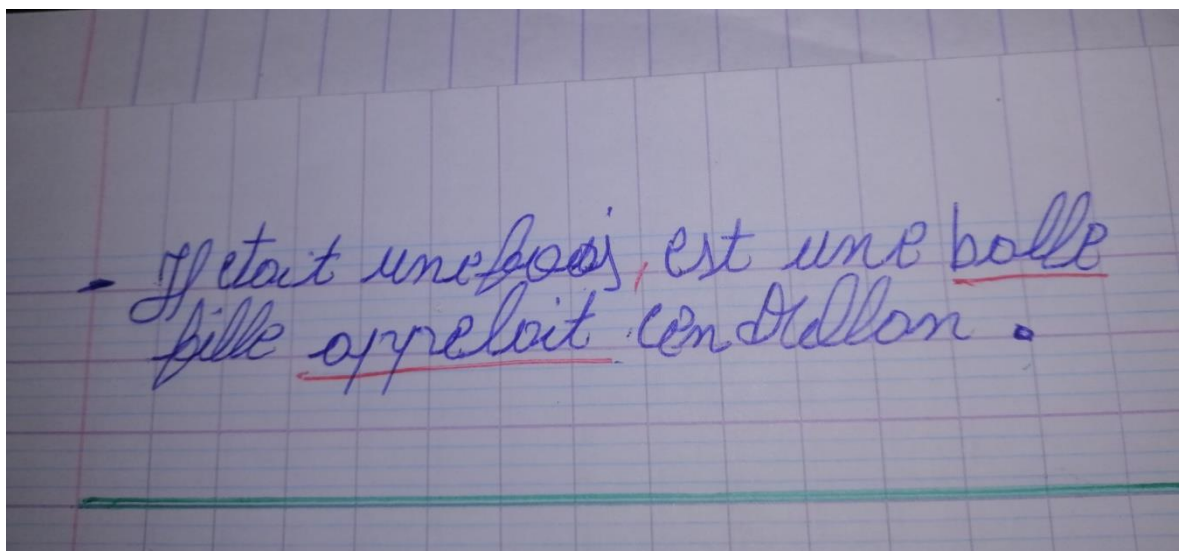 - Il etait une fois, est une balle
fille appelait Cendrellan.